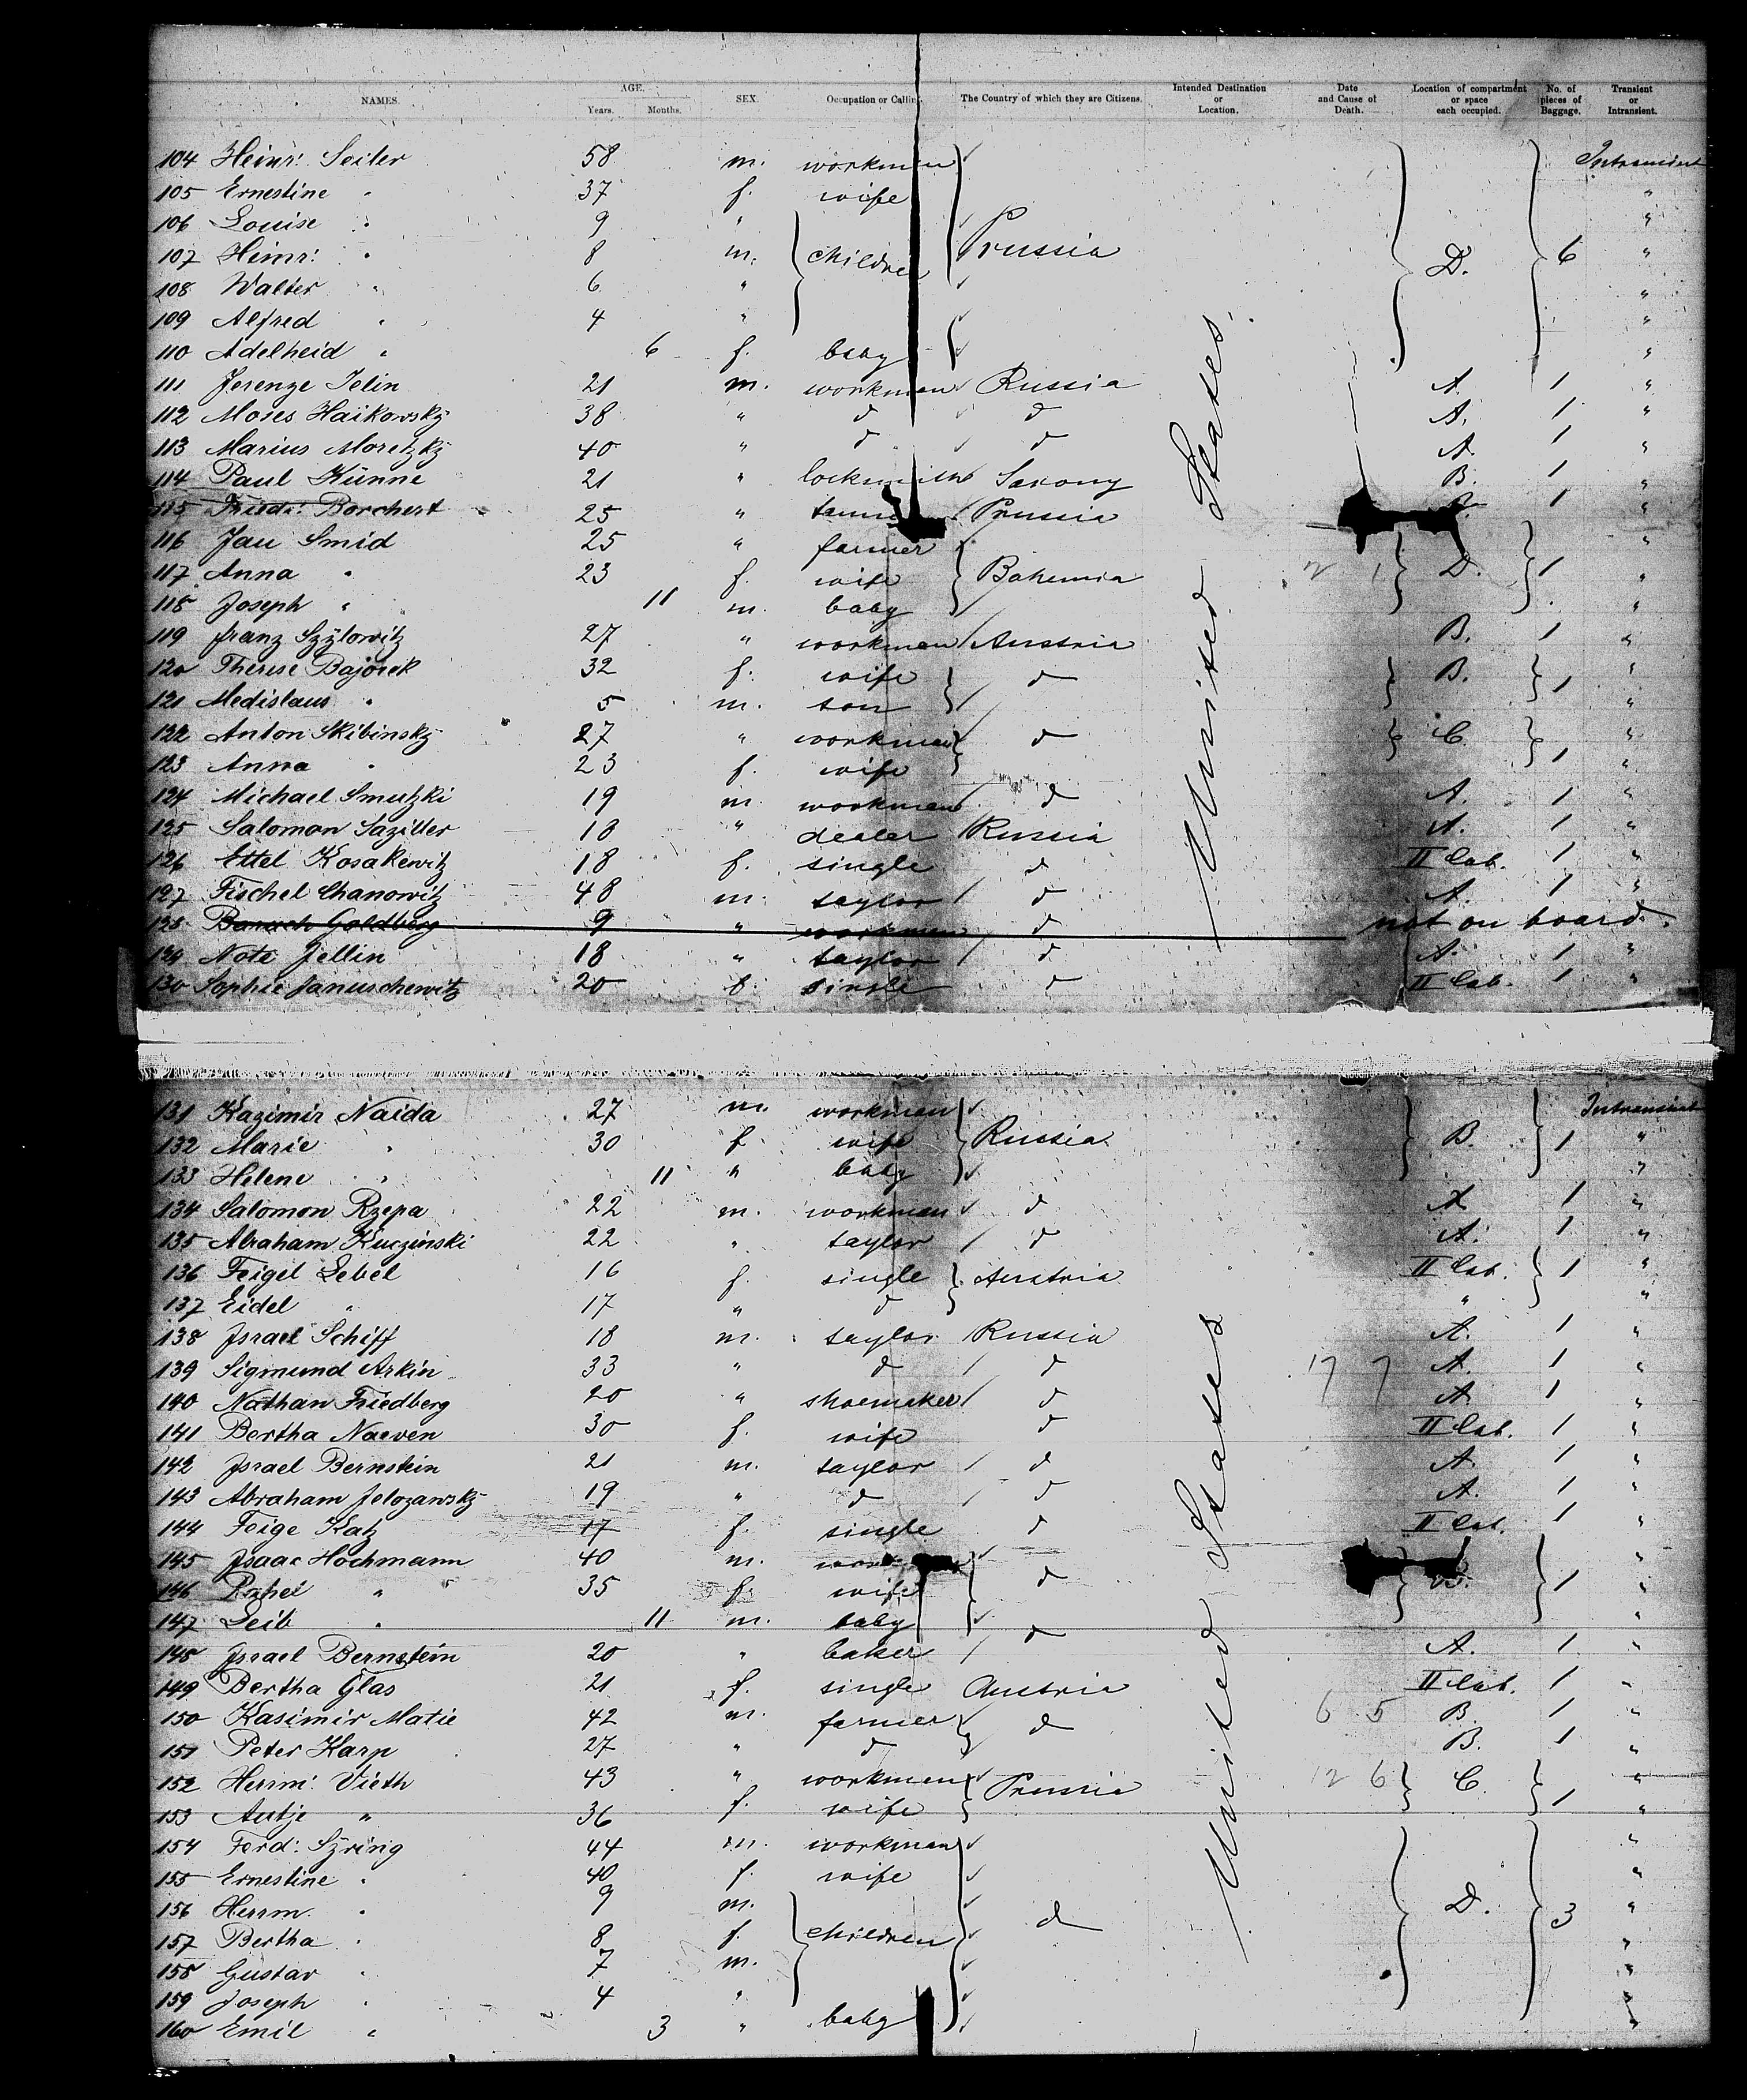 NAMES. AGE. Years. Months. SEX. Occupation or Calling The Country of which they are Citizens. Intended Destination or Location. Date and Cause of Death. Location of compartment or space each occupied. No. of pieces of Baggage. Transient or Intransient.
104 Heinr: Seiler 58 m. workman Intransient
105 Ernestine " 37 f. wife "
106 Louise " 9 " "
107 Heinr: " 8 m. children Prussia D. 6 "
108 Walter " 6 " "
109 Alfred " 4 " "
110 Adelheid " 6 f. baby "
111 Jerenze Jelin 21 m. workman Russia A. 1 "
112 Moses Haikowsky 38 " d d A. 1 "
113 Marius Moretzky 40 " d d A. 1 "
114 Paul Künne 21 " locksmith Saxony B. 1 "
115 Friedr: Borchert 25 " Prussia 1 "
116 Jan Smid 25 " farmer "
117 Anna " 23 f. wife Bohemia D. 1 "
118 Joseph " 11 m. baby "
119 Franz Szylowitz 27 " workman Austria B. 1 "
120 Therese Bajorek 32 f. wife d B. 1 "
121 Medislaus " 5 m. son "
122 Anton Skibinsky 27 " workman d C. 1 "
123 Anna " 23 f. wife "
124 Michael Smutzki 19 m. workman d A. 1 "
125 Salomon Saziller 18 " dealer Russia A. 1 "
126 Ettel Kosakewitz 18 f. single d II Cab. 1 "
127 Fischel Chanowitz 48 m. taylor d A. 1 "
128 Baruch Goldberg 9 " workman d not on board.
129 Nota Jellin 18 " taylor d A. 1 "
130 Sophie Januschewitz 20 f. single d II Cab. 1 "
United States.
131 Kazimir Naida 27 m. workman Intransient
132 Marie " 30 f wife Russia. B. 1 "
133 Helene " 11 " baby "
134 Salomon Rzepa 22 m. workman d A. 1 "
135 Abraham Kuczinski 22 " taylor d A. 1 "
136 Feigel Lebel 16 f. single Austria II Cab. 1 "
137 Eidel " 17 " d " "
138 Israel Schiff 18 m. taylor Russia A. 1 "
139 Sigmund Arkin 33 " d d 17 7 A. 1 "
140 Nathan Friedberg 20 " shoemaker d A. 1 "
141 Bertha Naeven 30 f. wife d II Cab. 1 "
142 Israel Bernstein 21 m. taylor d A. 1 "
143 Abraham Jelozansky 19 " d d A. 1 "
144 Feige Katz 17 f. single d II Cab. 1 "
145 Isaac Hochmann 40 m. "
146 Rahel " 35 f. wife d 1 "
147 Leib " 11 m. baby "
148 Israel Bernstein 20 " baker d A. 1 "
149 Bertha Glas 21 f. single Austria II Cab. 1 "
150 Kasimir Matie 42 m. farmer d 6 5 B. 1 "
151 Peter Karp 27 " d B. 1 "
152 Herrm: Vieth 43 " workman Prussia 12 6 C. 1 "
153 Antje " 36 f. wife "
154 Ferd: Syring 44 m. workman "
155 Ernestine " 40 f. wife "
156 Herrm. " 9 m. d D. 3 "
157 Bertha " 8 f. children "
158 Gustav " 7 m. "
159 Joseph " 4 " "
160 Emil " 3 " baby "
United States